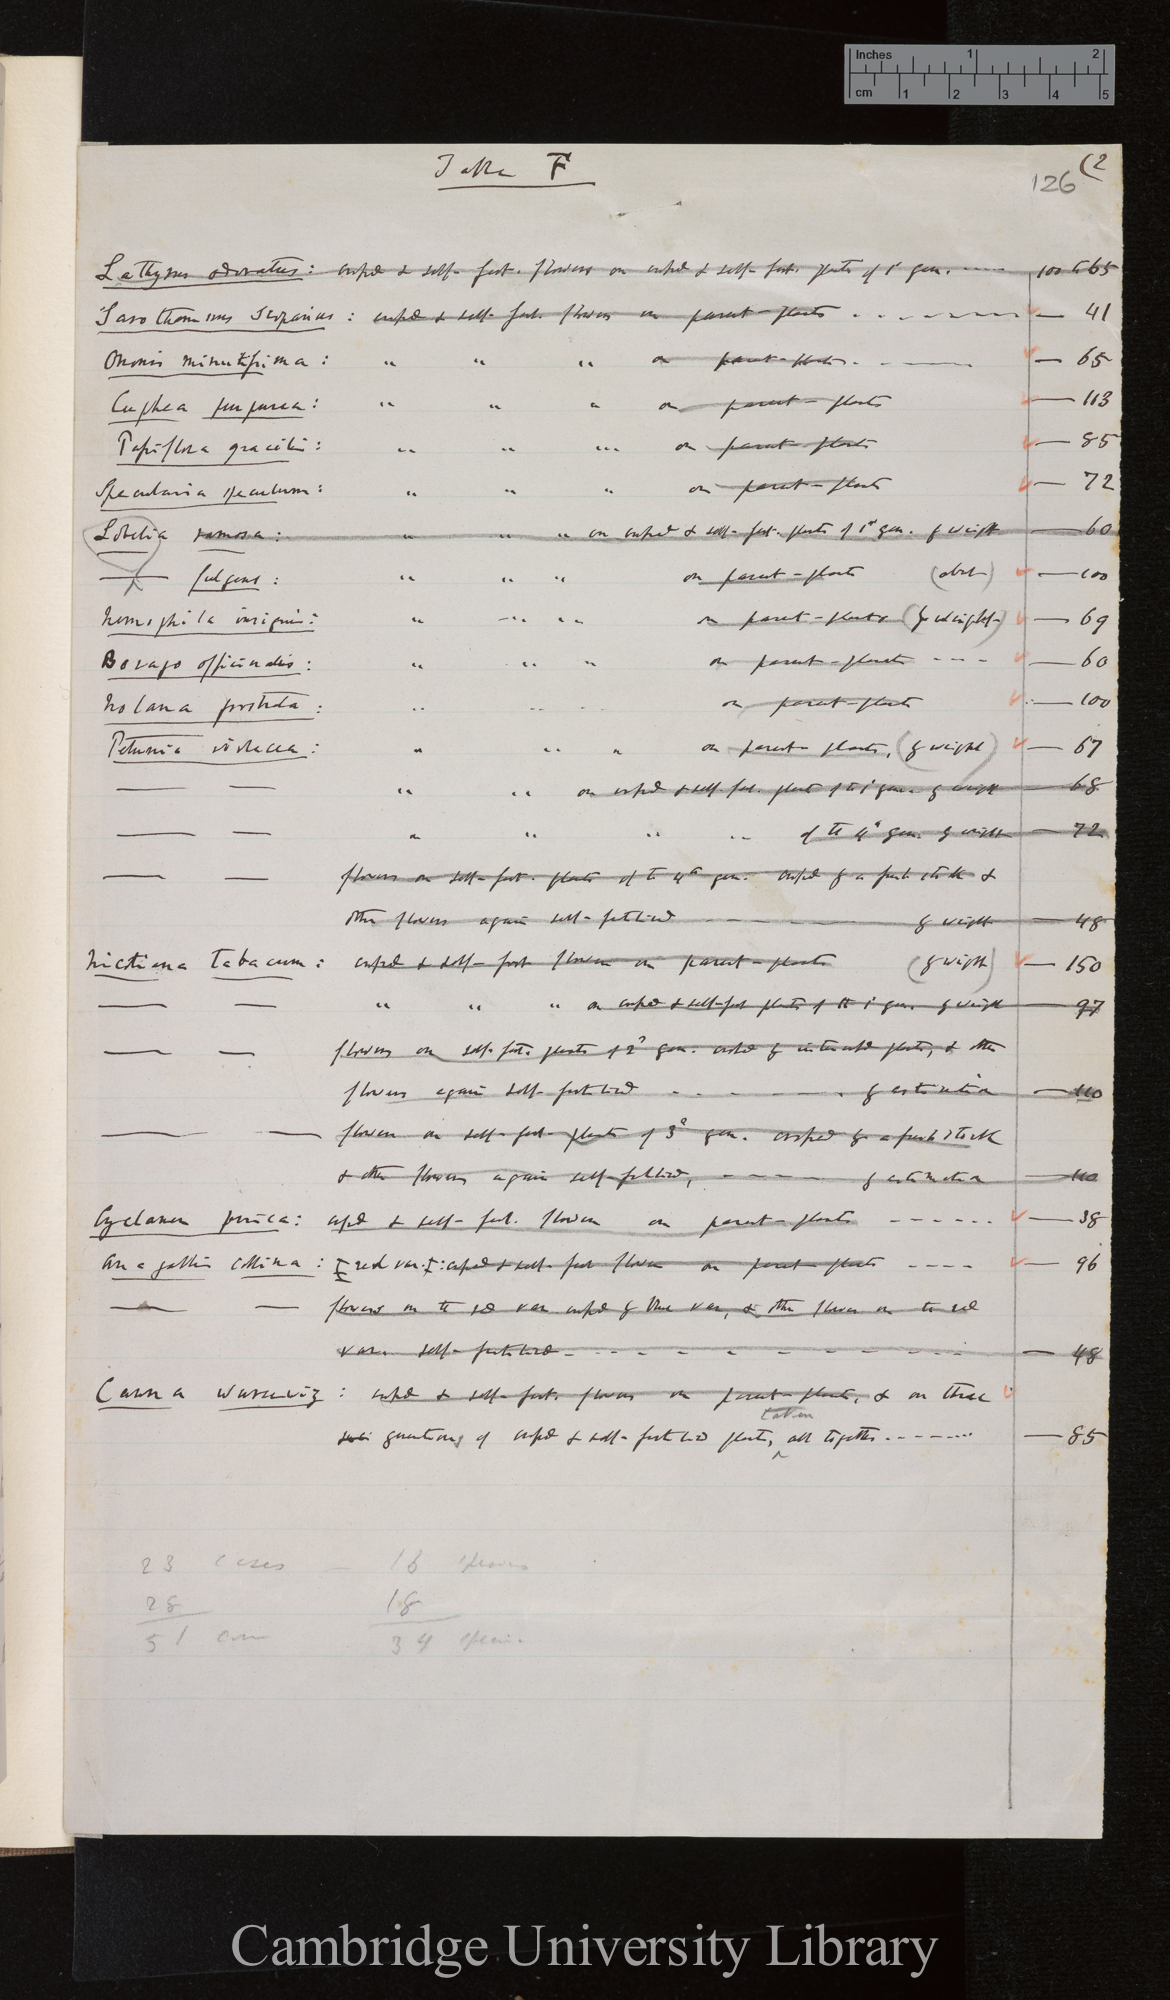 Inches 1 2
cm 1 2 3 4 5
Table F
126 (2
Lathyrus odoratus: crossd & self-fert. flowers on crossd & self-fert. plants of 1st gen. ---- 100 to 65
Sarothamnus scoparius: crossd & self-fert. flowers on parent-plants - - - - - — 41
Ononis minutissima: " " " on parent-plants. - — 65
Cuphea purpurea: " " " on parent-plants — 113
Passiflora gracilis: " " " on parent-plants — 85
Specularia speculum: " " " on parent-plants — 72
Lobelia ramosa: " " " on crossd & self-fert. plants of 1st gen. by weight — 60
— fulgens: " " " on parent-plants (about) — 100
Nemophila insignis: " " " on parent-plants (by weight) — 69
Borago officinalis: " " " on parent-plants - - - - — 60
Nolana prostrata: " " on parent-plants — 100
Petunia violacea: " " " on parent-plants, (by weight) — 67
— — " " on crossd & self-fert. plants of the 1st gen. by weight — 68
— — " " " " of the 4th gen. by weight — 72
— — flowers on self-fert. plants of the 4th gen. crossd by a fresh stock &
other flowers again self-fertilised - — by weight — 48
Nicotiana tabacum: crossd & self-fert flowers on parent-plants (by weight) — 150
— — " " " on crossd & self-fert plants of the 1st gen. by weight — 97
— — flowers on self-fert. plants of 2d gen. crossd by intercrossd plants, & other
flowers again self-fertilised - - - - by estimation — 110
— — flowers on self-fert plants of 3d gen. crossed by a fresh stock
& other flowers again self-fertilised, - - - - by estimation — 110
Cyclamen persica: crossd & self-fert. flowers on parent-plants - - - - - - — 38
Anagallis collina: red var.: crossd & self-fert flowers on parent-plants - - - - — 96
— — flowers on the red var. crossd by blue var., & other flowers on the red
var. self-fertilised - - - - - - - - — 48
Canna warscewiz: crossd & self-fert. flowers on parent-plants, & on three
generations of crossd & self-fertilised plants, taken all together - - - - - — 85
23 cases — 16 species
28 18
51 cases 34 species
Cambridge University Library